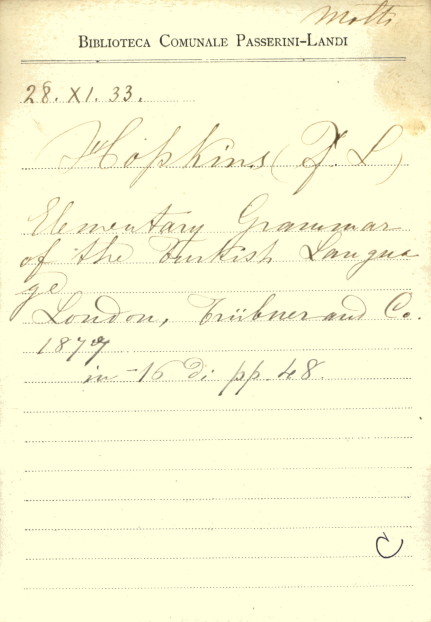 Molti
BIBLIOTECA COMUNALE PASSERINI-LANDI
28. XI. 33.
Hopkins (F. L)
Elementary Grammar
of the Turkish Langua
ge
London, Trübner and Co.
1877
in-16 di pp. 48.
C